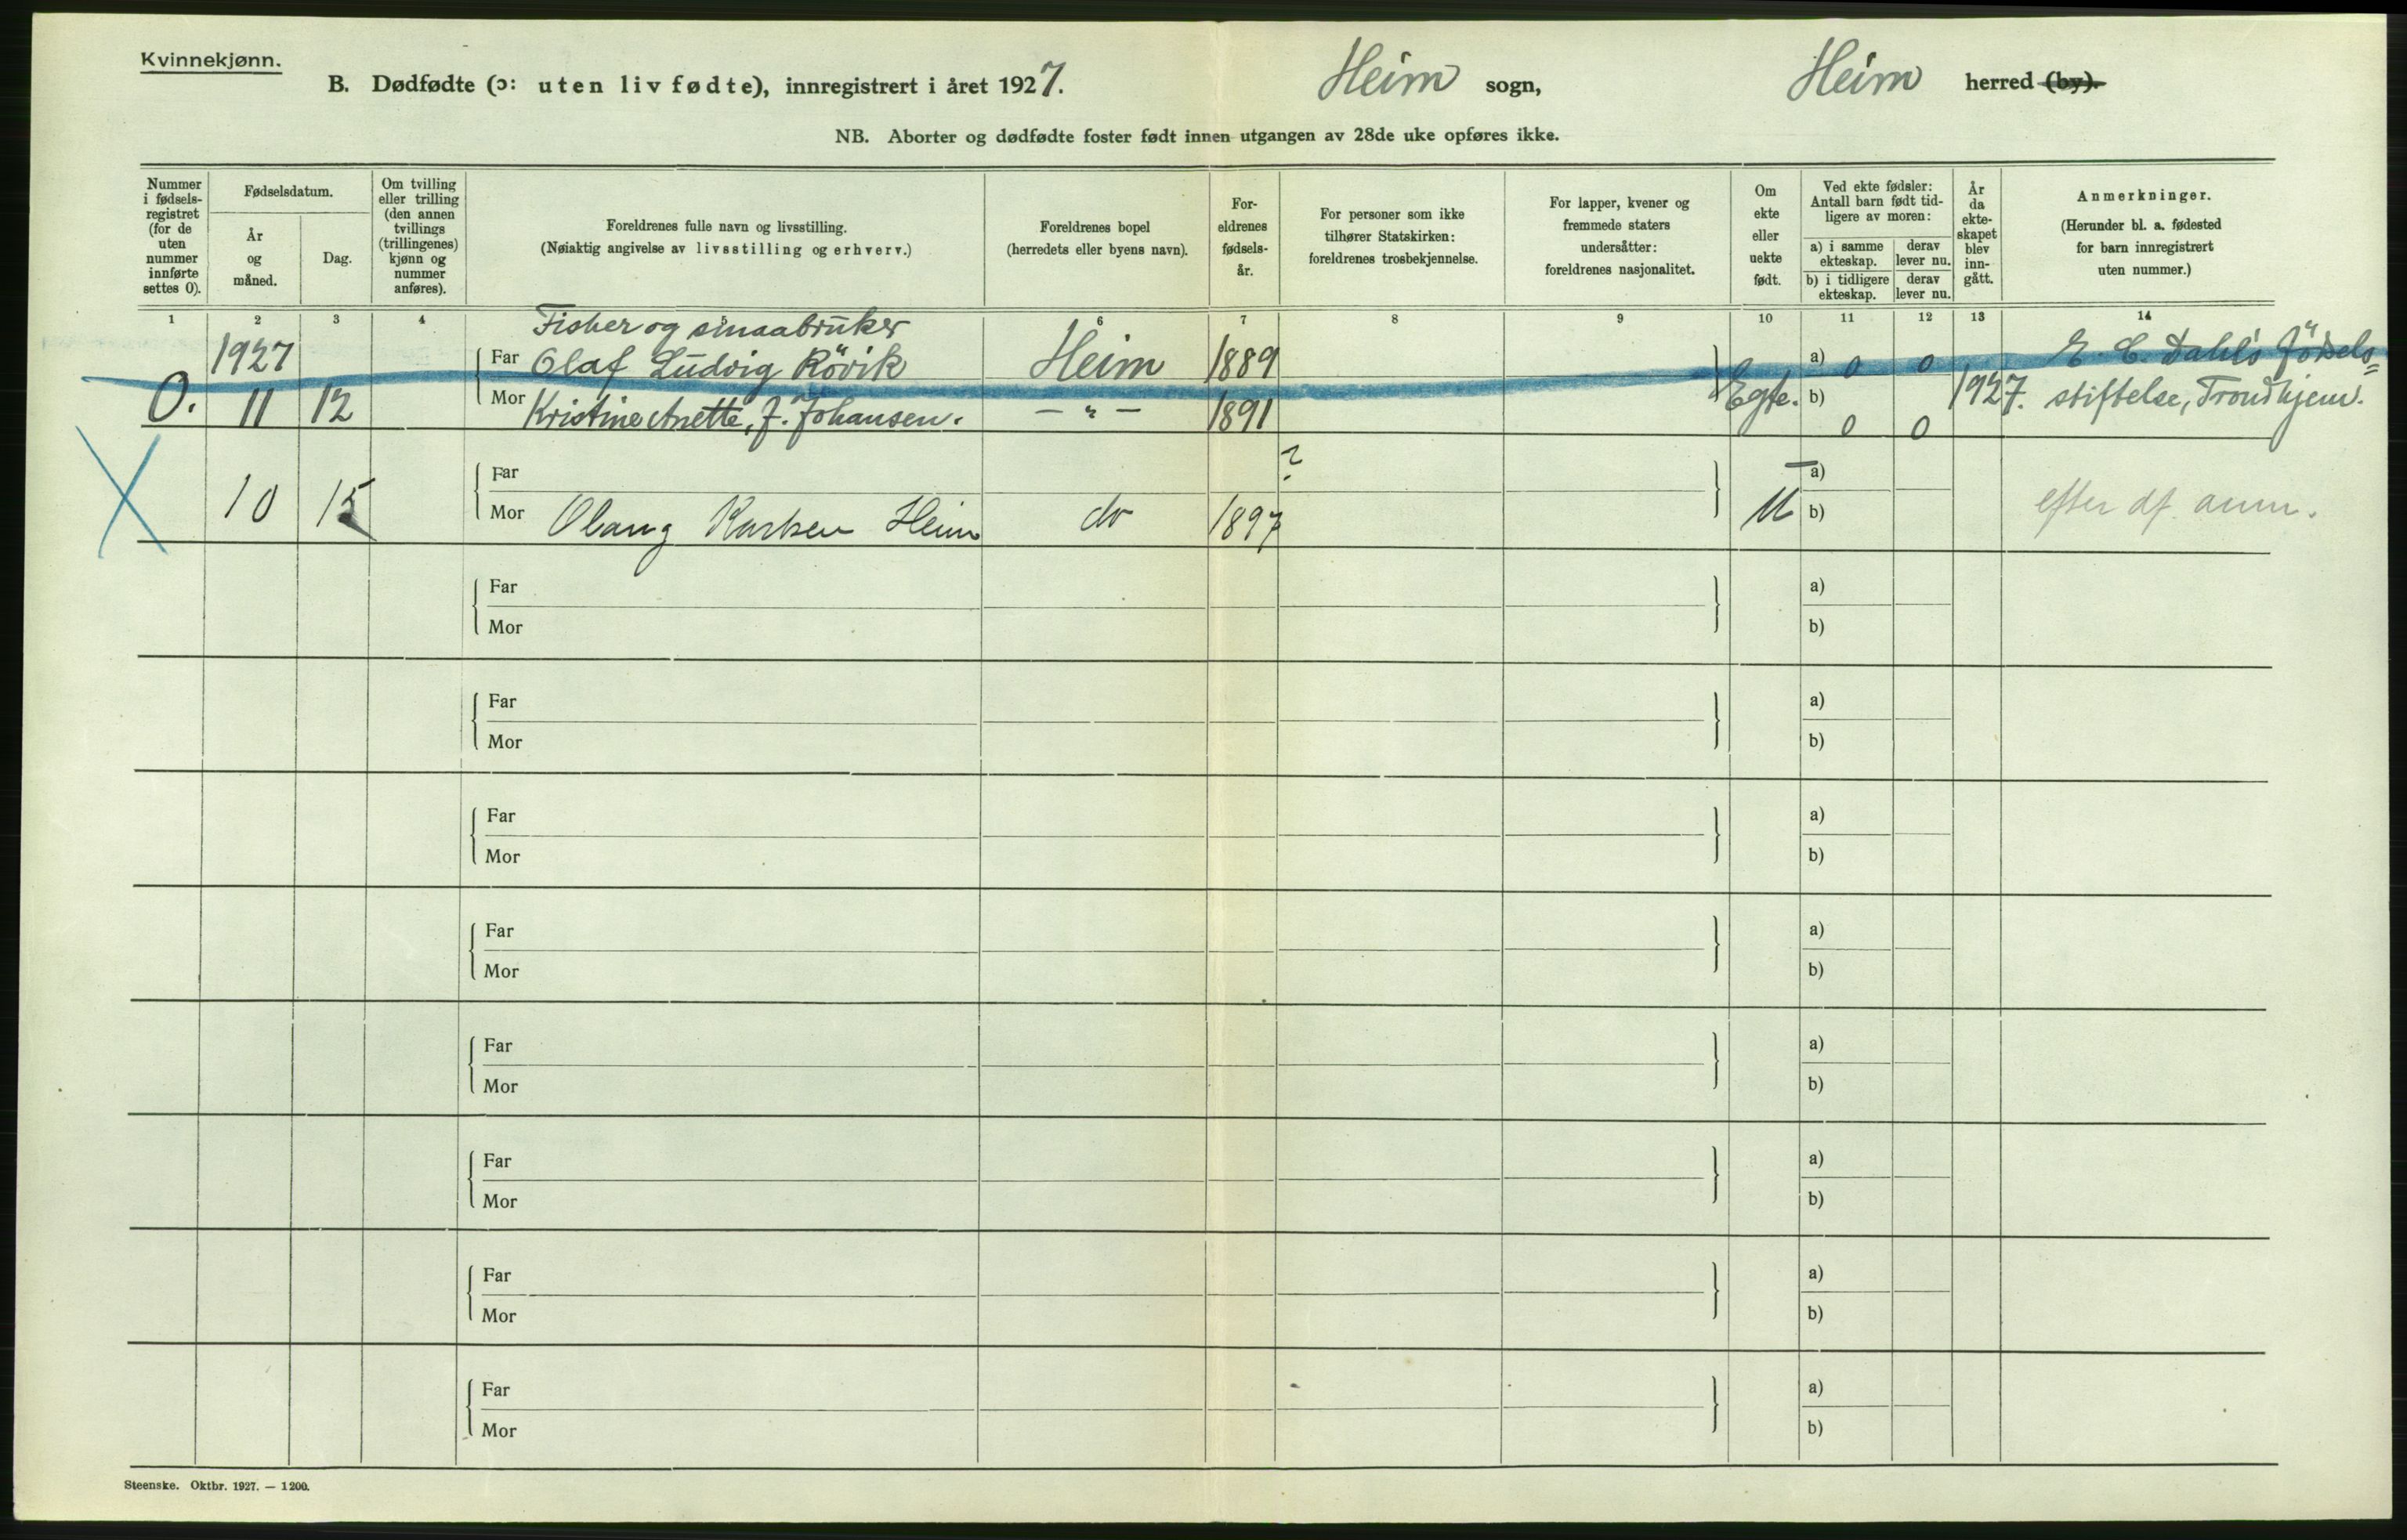 Kvinnekjønn.
B. Dødfødte (ɔ: uten liv fødte), innregistrert i året 1927.
Heim sogn,
Heim herred (by).
NB. Aborter og dødfødte foster født innen utgangen av 28de uke opføres ikke.
Nummer
i fødsels-
registret
(for de
uten
nummer
innførte
settes 0).
Fødselsdatum.
År
og
måned.
Dag.
Om tvilling
eller trilling
(den annen
tvillings
(trillingenes)
kjønn og
nummer
anføres).
Foreldrenes fulle navn og livsstilling.
(Nøiaktig angivelse av livsstilling og erhverv.)
Foreldrenes bopel
(herredets eller byens navn).
For-
eldrenes
fødsels-
år.
For personer som ikke
tilhører Statskirken:
foreldrenes trosbekjennelse.
For lapper, kvener og
fremmede staters
undersåtter:
foreldrenes nasjonalitet.
Om
ekte
eller
uekte
født.
Ved ekte fødsler:
Antall barn født tid-
ligere av moren:
a) i samme
ekteskap.
derav
lever nu.
b) i tidligere
ekteskap.
derav
lever nu.
År
da
ekte-
skapet
blev
inn-
gått.
Anmerkninger.
(Herunder bl. a. fødested
for barn innregistrert
uten nummer.)
1 2 3 4 5 6 7 8 9 10 11 12 13 14
Fisker og smaabruker
1927 Far Olaf Ludvig Rövik Heim 1889 a) 0 0 E. C. Dahls födsels=
0. 11 12 Mor Kristine Anette, f. Johansen. — " — 1891 Egte. b) 0 0 1927. stiftelse, Trondhjem.
Far ? a)
10 15 Mor Olaug Karlsen Heim do 1897 U b) efter df. anm.
Far a)
Mor b)
Far a)
Mor b)
Far a)
Mor b)
Far a)
Mor b)
Far a)
Mor b)
Far a)
Mor b)
Far a)
Mor b)
Far a)
Mor b)
Steenske. Oktbr. 1927. — 1200.